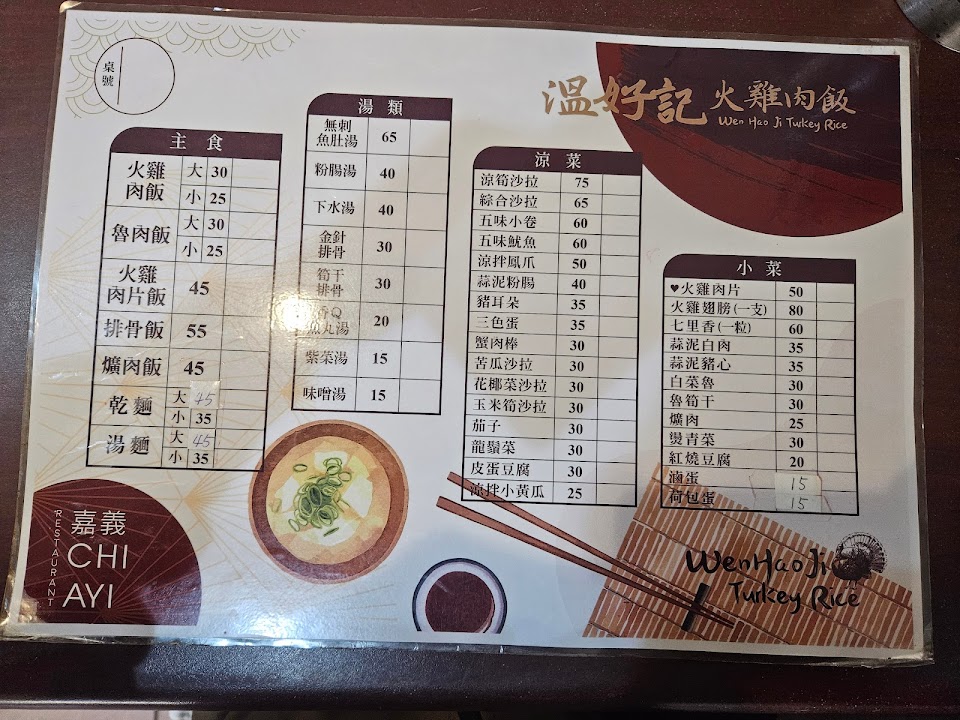 桌號
溫好記 火雞肉飯
Wen Hao Ji Turkey Rice
主食
火雞肉飯 大 30
小 25
魯肉飯 大 30
小 25
火雞肉片飯 45
排骨飯 55
爌肉飯 45
乾麵 大 45
小 35
湯麵 大 45
小 35
湯類
無刺魚肚湯 65
粉腸湯 40
下水湯 40
金針排骨 30
筍干排骨 30
香Q魚丸湯 20
紫菜湯 15
味噌湯 15
涼菜
涼筍沙拉 75
綜合沙拉 65
五味小卷 60
五味魷魚 60
涼拌鳳爪 50
蒜泥粉腸 40
豬耳朵 35
三色蛋 35
蟹肉棒 30
苦瓜沙拉 30
花椰菜沙拉 30
玉米筍沙拉 30
茄子 30
龍鬚菜 30
皮蛋豆腐 30
涼拌小黃瓜 25
小菜
♥火雞肉片 50
火雞翅膀(一支) 80
七里香(一粒) 60
蒜泥白肉 35
蒜泥豬心 35
白菜魯 30
魯筍干 30
爌肉 25
燙青菜 30
紅燒豆腐 20
滷蛋 15
荷包蛋 15
RESTAURANT
嘉義
CHI
AYI
WenHaoJi
Turkey Rice